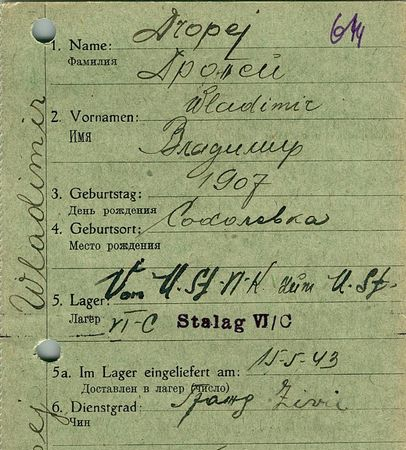 614
1. Name: Dropej
Фамилия Дропей
Wladimir
2. Vornamen:
Имя Владимир
1907
3. Geburtstag:
День рождения
4. Geburtsort: Соколовка
Место рождения
Von M. St. VI-K zum M. St.
5. Lager:
Лагер VI-C Stalag VI/C
5a. Im Lager eingeliefert am: 15-5-43
Доставлен в лагер (число)
6. Dienstgrad: Zivil
Чин
Wladimir